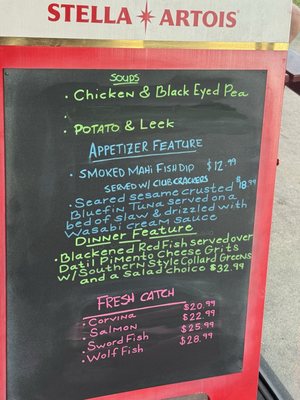 STELLA ARTOIS
SOUPS
. Chicken & Black Eyed Pea
.
. POTATO & Leek
APPETIZER FEATURE
. SMOKED MAHI FISH DIP $12.99
SERVED W/ CLUB CRACKERS
. Seared sesame crusted $18.99
Bluefin Tuna served on a
bed of slaw & drizzled with
Wasabi cream sauce
DINNER FEATURE
. Blackened Red Fish served over
Datil Pimento Cheese Grits
w/ Southern Style Collard Greens
and a Salad choice $32.99
FRESH CATCH
. Corvina $20.99
. Salmon $22.99
. Sword Fish $25.99
. Wolf Fish $28.99